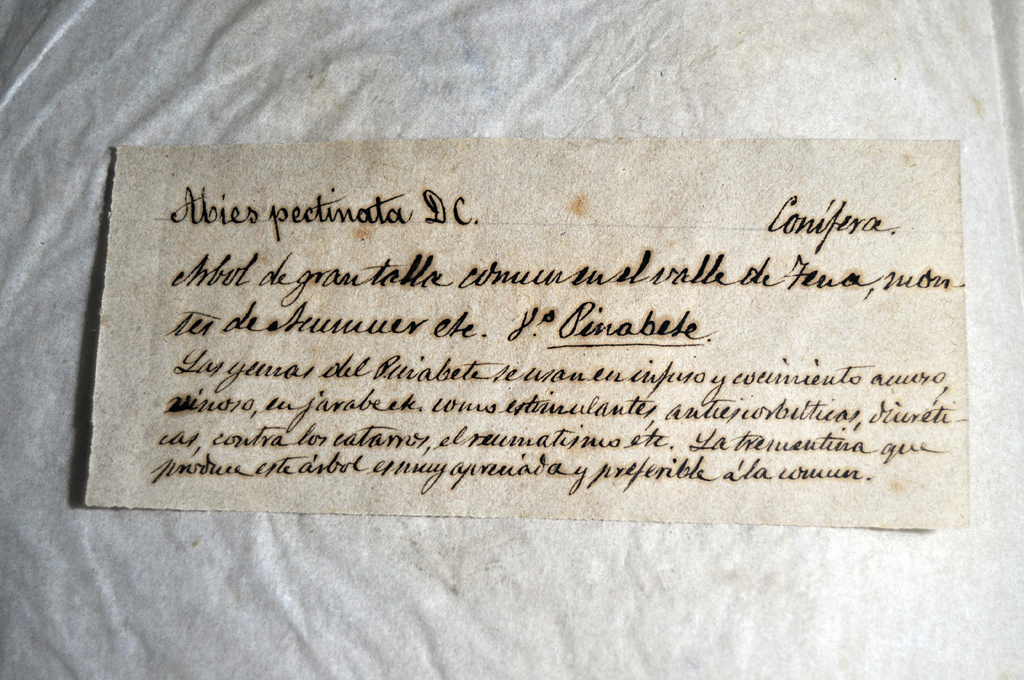 Abies pectinata DC. Conífera.
Arbol de gran talla comun en el valle de Tena, mon-
tes de Aumuer etc. V.º Pinabete.
Las yemas del Pinabete se usan en infuso y cocimiento acuoso,
vinoso, en jarabe etc. como estimulantes, antiescorbúticas, diuréti-
cas, contra los catarros, el reumatismo étc. La trementina que
produce este árbol es muy apreciada y preferible á la comun.